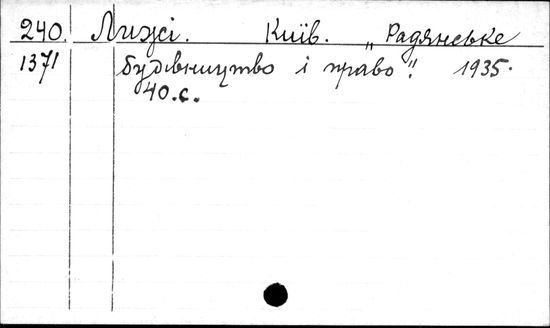 240. Лижі. Київ. „Радянське
1371 будівництво і право". 1935.
40.с.